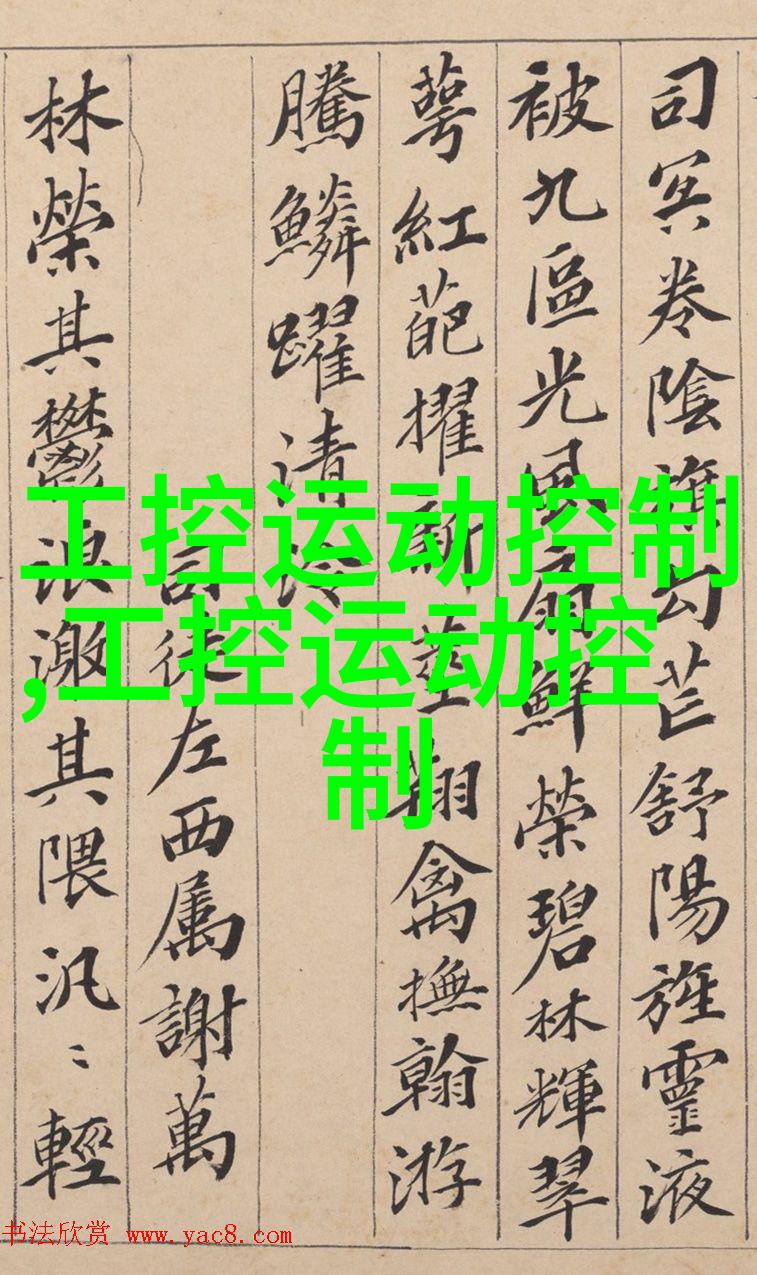 司冥卷陰旗勾芒舒陽旌靈液
被九區光風扇鮮榮碧林輝翠
萼紅葩擢新莖翔禽撫翰游
騰鱗躍清泠
司徒左西属謝萬
林榮其鬱浪激其隈汎〻輕
工控运动控制
,工控运动控
制
书法欣赏 www.yac8.com